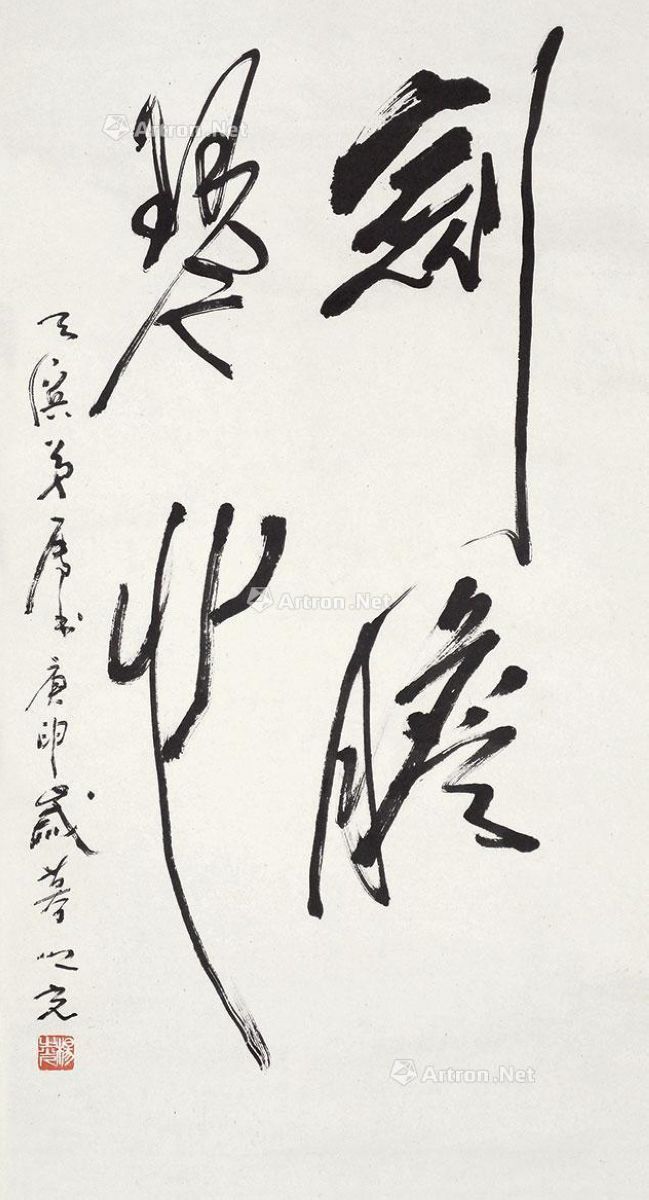 劍膽
琴心
弟属书庚申歲暮之光
Artron.Net
Artron.Net
Artron.Net